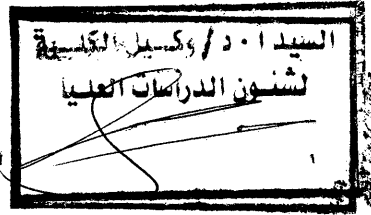 السيد ا . د / وكيل الكلية
لشئون الدراسات العليا